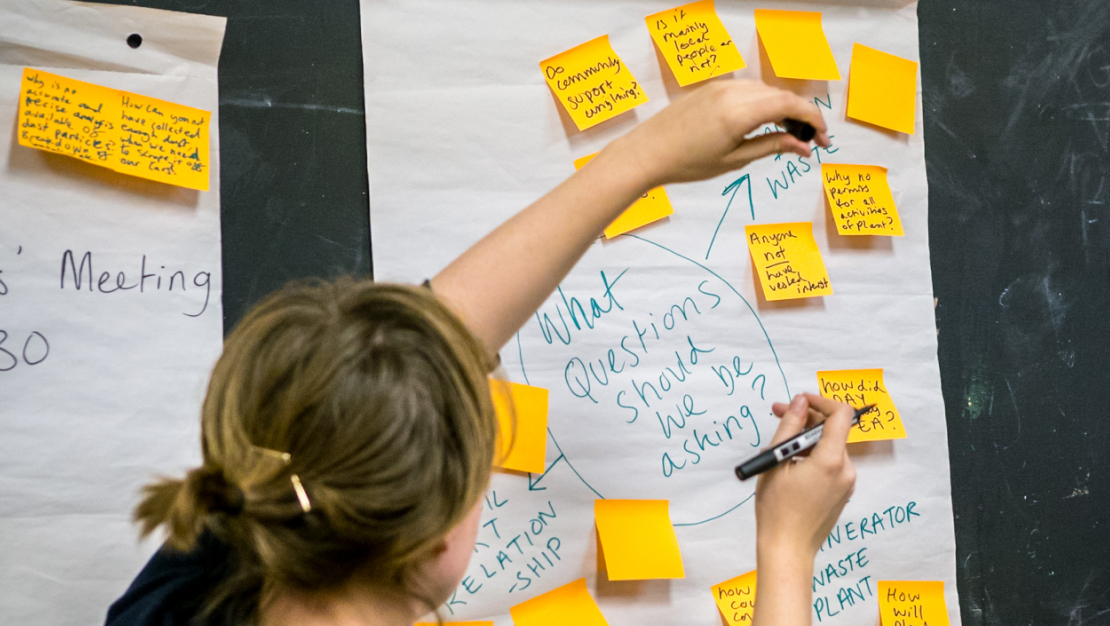 why is no
accurate and
precise analysis
available of
dust particle?
Breakdown of
How can you not
have collected
enough dust
when we need
to scrape it off
our cars
Meeting
30
Do
community
suport
anything?
Is it
mainly
local
people or
not?
WASTE
Why no
permits
for all
activities
of plant?
Anyone
not
have
vested interest
What
Questions
should
we be
asking?
how did
EA?
RELATION
-SHIP
NERATOR
WASTE
PLANT
how
How
will